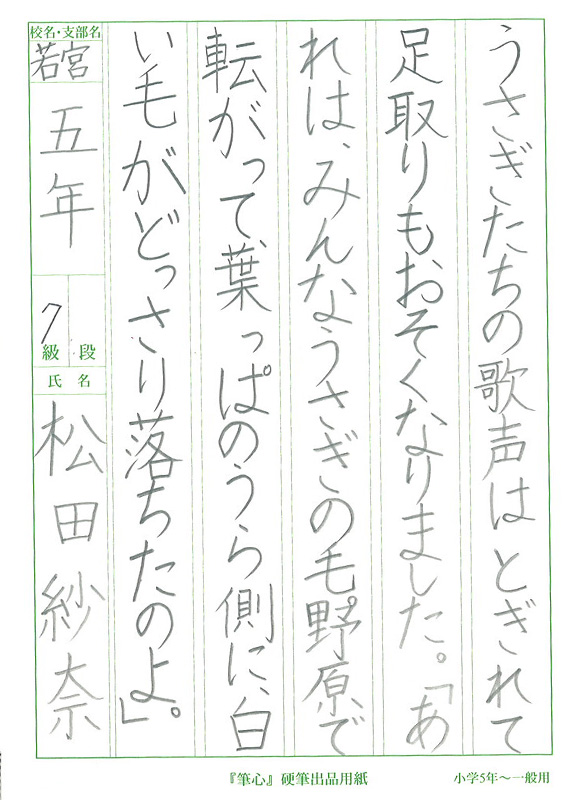 うさぎたちの歌声はとぎれて
足取りもおそくなりました。「あ
れは、みんなうさぎの毛野原で
転がって、葉っぱのうら側に、白
い毛がどっさり落ちたのよ」。
校名・支部名
若宮
五年
7
級 段
氏 名
松田紗奈
『筆心』硬筆出品用紙
小学5年〜一般用